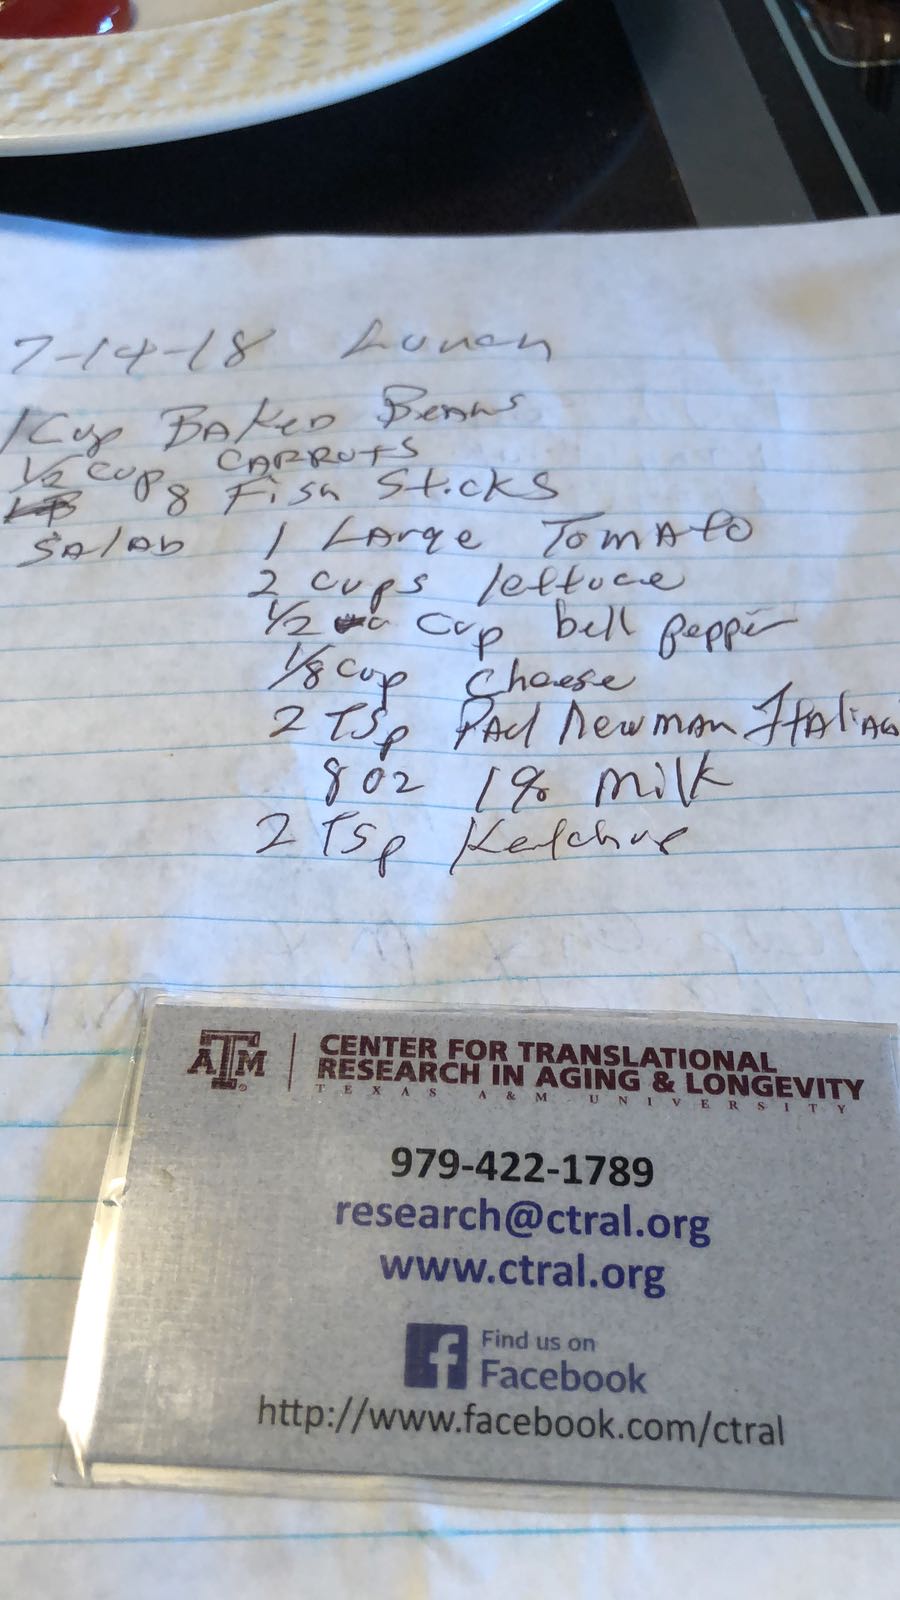 7-14-18 Lunch
1 Cup BAKED BEANS
1/2 cup CARROTS
8 Fish Sticks
SALAD 1 LARge TOMATO
2 cups lettuce
1/2 cup bell pepper
1/8 cup cheese
2 TSp PAul Newman ITALiAN
8 oz 1% milk
2 TSp Ketchup
ATM CENTER FOR TRANSLATIONAL
RESEARCH IN AGING & LONGEVITY
TEXAS A&M UNIVERSITY
979-422-1789
research@ctral.org
www.ctral.org
f Find us on
Facebook
http://www.facebook.com/ctral